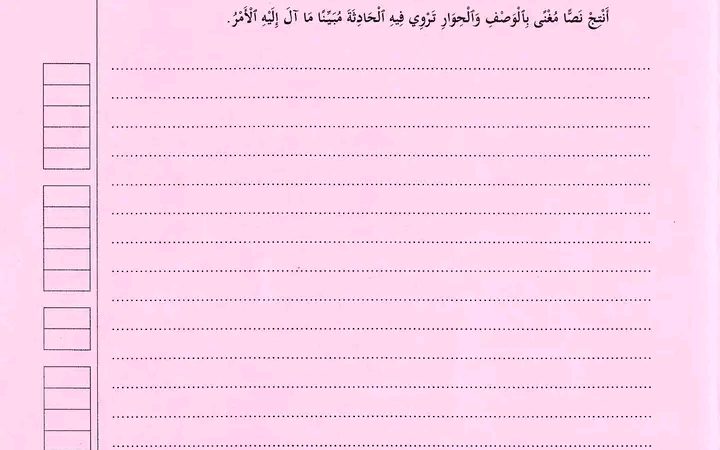 أَنْتِجْ نَصًّا مُغْنًى بِٱلْوَصْفِ وَٱلْحِوَارِ تَرْوِي فِيهِ ٱلْحَادِثَةَ مُبَيِّنًا مَا آلَ إِلَيْهِ ٱلْأَمْرُ.